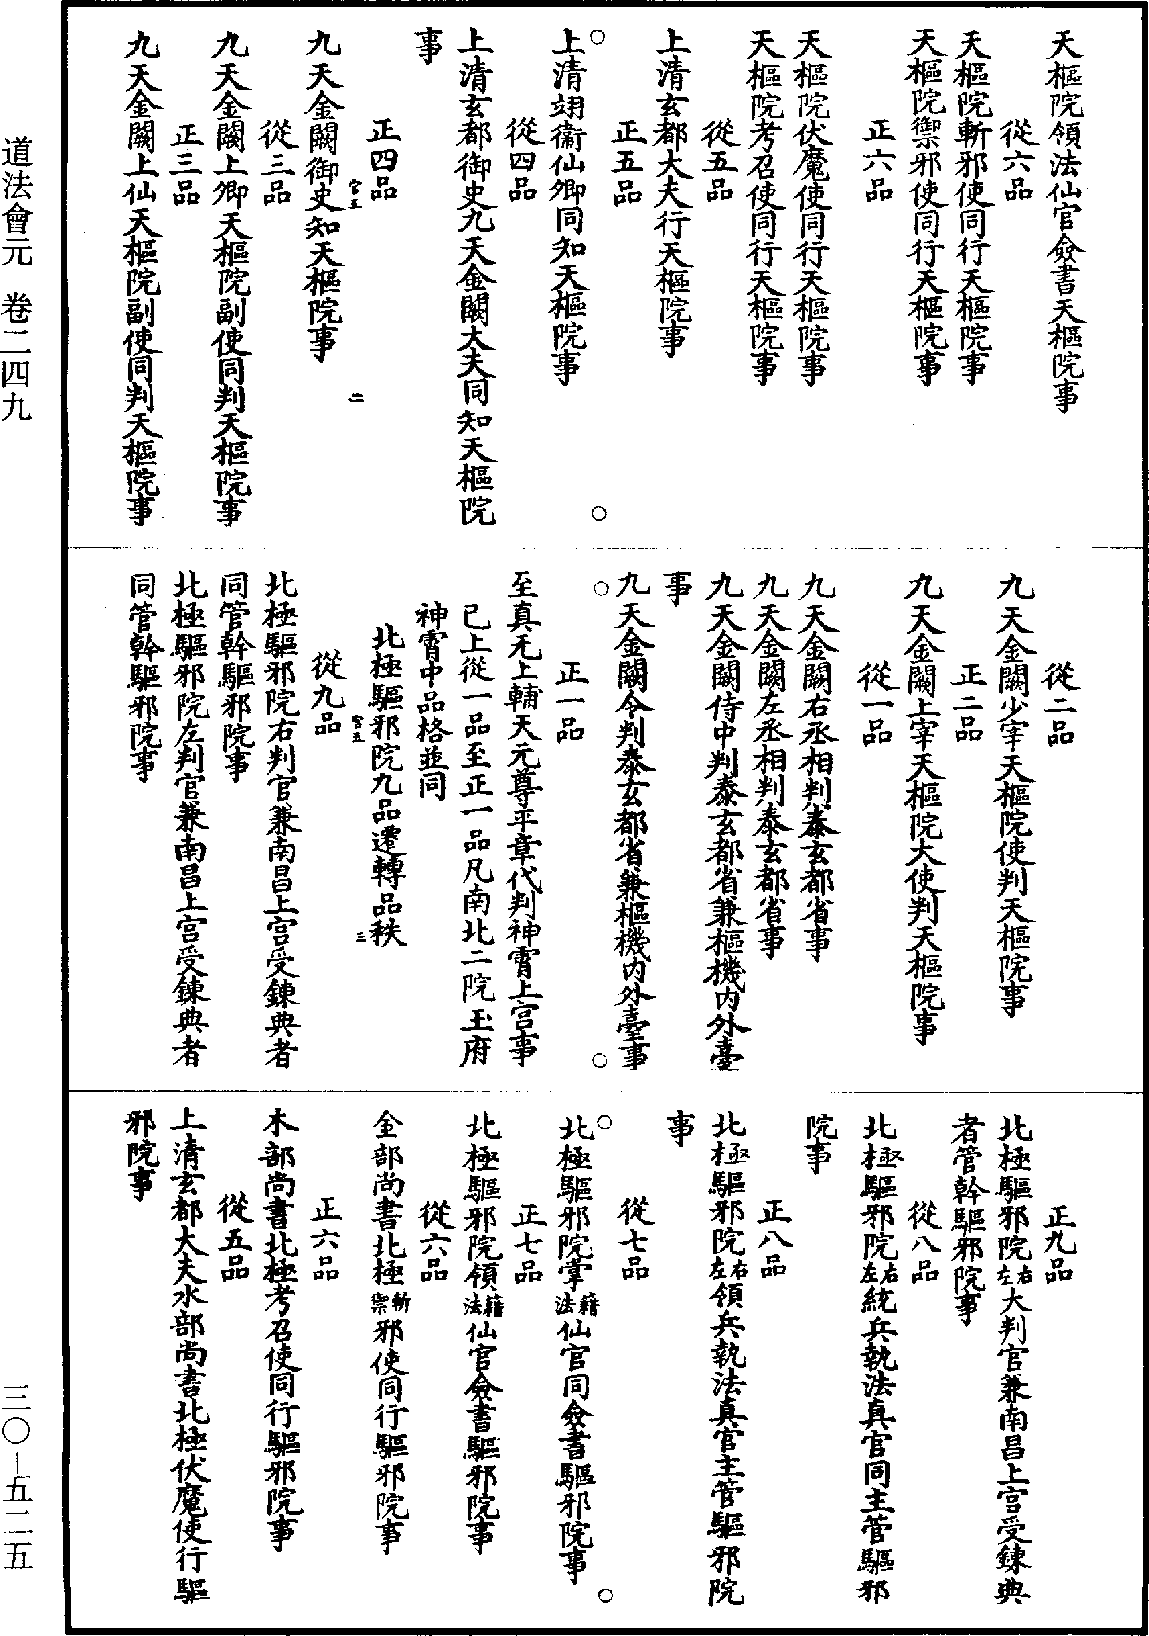 天樞院領法仙官僉書天樞院事
從六品
天樞院斬邪使同行天樞院事
天樞院禦邪使同行天樞院事
正六品
天樞院伏魔使同行天樞院事
天樞院考召使同行天樞院事
從五品
上清玄都大夫行天樞院事
正五品
上清翊衞仙卿同知天樞院事
從四品
上清玄都御史九天金闕大夫同知天樞院
事
正四品
九天金闕御史知天樞院事
從三品
九天金闕上卿天樞院副使同判天樞院事
正三品
九天金闕上仙天樞院副使同判天樞院事
從二品
九天金闕少宰天樞院使判天樞院事
正二品
九天金闕上宰天樞院大使判天樞院事
從一品
九天金闕右丞相判泰玄都省事
九天金闕左丞相判泰玄都省事
九天金闕侍中判泰玄都省兼樞機内外臺
事
九天金闕令判泰玄都省兼樞機内外臺事
正一品
至真无上輔天元尊平章代判神霄上宫事
已上從一品至正一品凡南北二院玉府
神霄中品格並同
北極驅邪院九品遷轉品秩
從九品
北極驅邪院右判官兼南昌上宫受鍊典者
同管幹驅邪院事
北極驅邪院左判官兼南昌上宫受鍊典者
同管幹驅邪院事
正九品
北極驅邪院右左大判官兼南昌上宫受鍊典
者管幹驅邪院事
從八品
北極驅邪院右左統兵執法真官同主管驅邪
院事
正八品
北極驅邪院右左領兵執法真官主管驅邪院
事
從七品
北極驅邪院掌籍法仙官同僉書驅邪院事
正七品
北極驅邪院領籍法仙官僉書驅邪院事
從六品
金部尚書北極斬禦邪使同行驅邪院事
正六品
木部尚書北極考召使同行驅邪院事
從五品
上清玄都大夫水部尚書北極伏魔使行驅
邪院事
道法會元 卷二四九
三〇—五二五